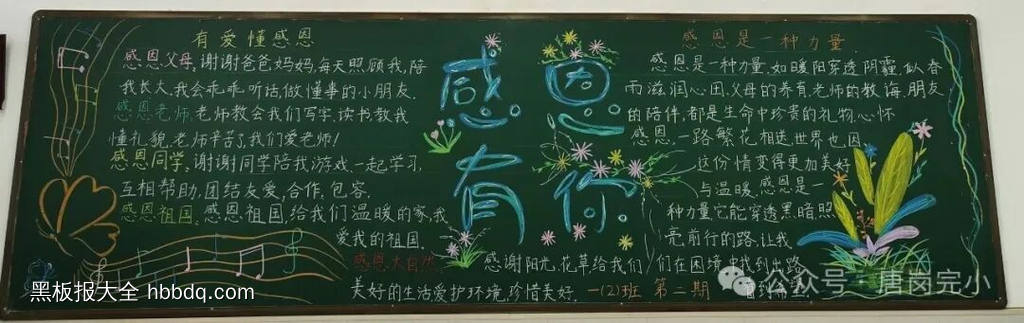 有爱懂感恩
感恩父母,谢谢爸爸,妈妈,每天照顾我,陪
我长大,我会乖乖听话,做懂事的小朋友.
感恩老师,老师教会我们写字,读书教我
懂礼貌,老师辛苦了,我们爱老师!
感恩同学,谢谢同学陪我游戏,一起学习,
互相帮助,团结友爱,合作,包容,
感恩祖国,感恩祖国给我们温暖的家,我
爱我的祖国.
感恩大自然,感谢阳光,花草给我们
美好的生活爱护环境,珍惜美好.
感恩有你
感恩是一种力量
感恩是一种力量.如暖阳穿透阴霾,似春
雨滋润心田,父母的养育老师的教诲,朋友
的陪伴,都是生命中珍贵的礼物,心怀
感恩,一路繁花相送,世界也因
这份情变得更加美好
与温暖,感恩是一
种力量它能穿透黑暗照
亮前行的路,让我
们在困境中找到出路
看到希望.
一(2)班 第二期
黑板报大全 hbbdq.com
公众号·唐岗完小